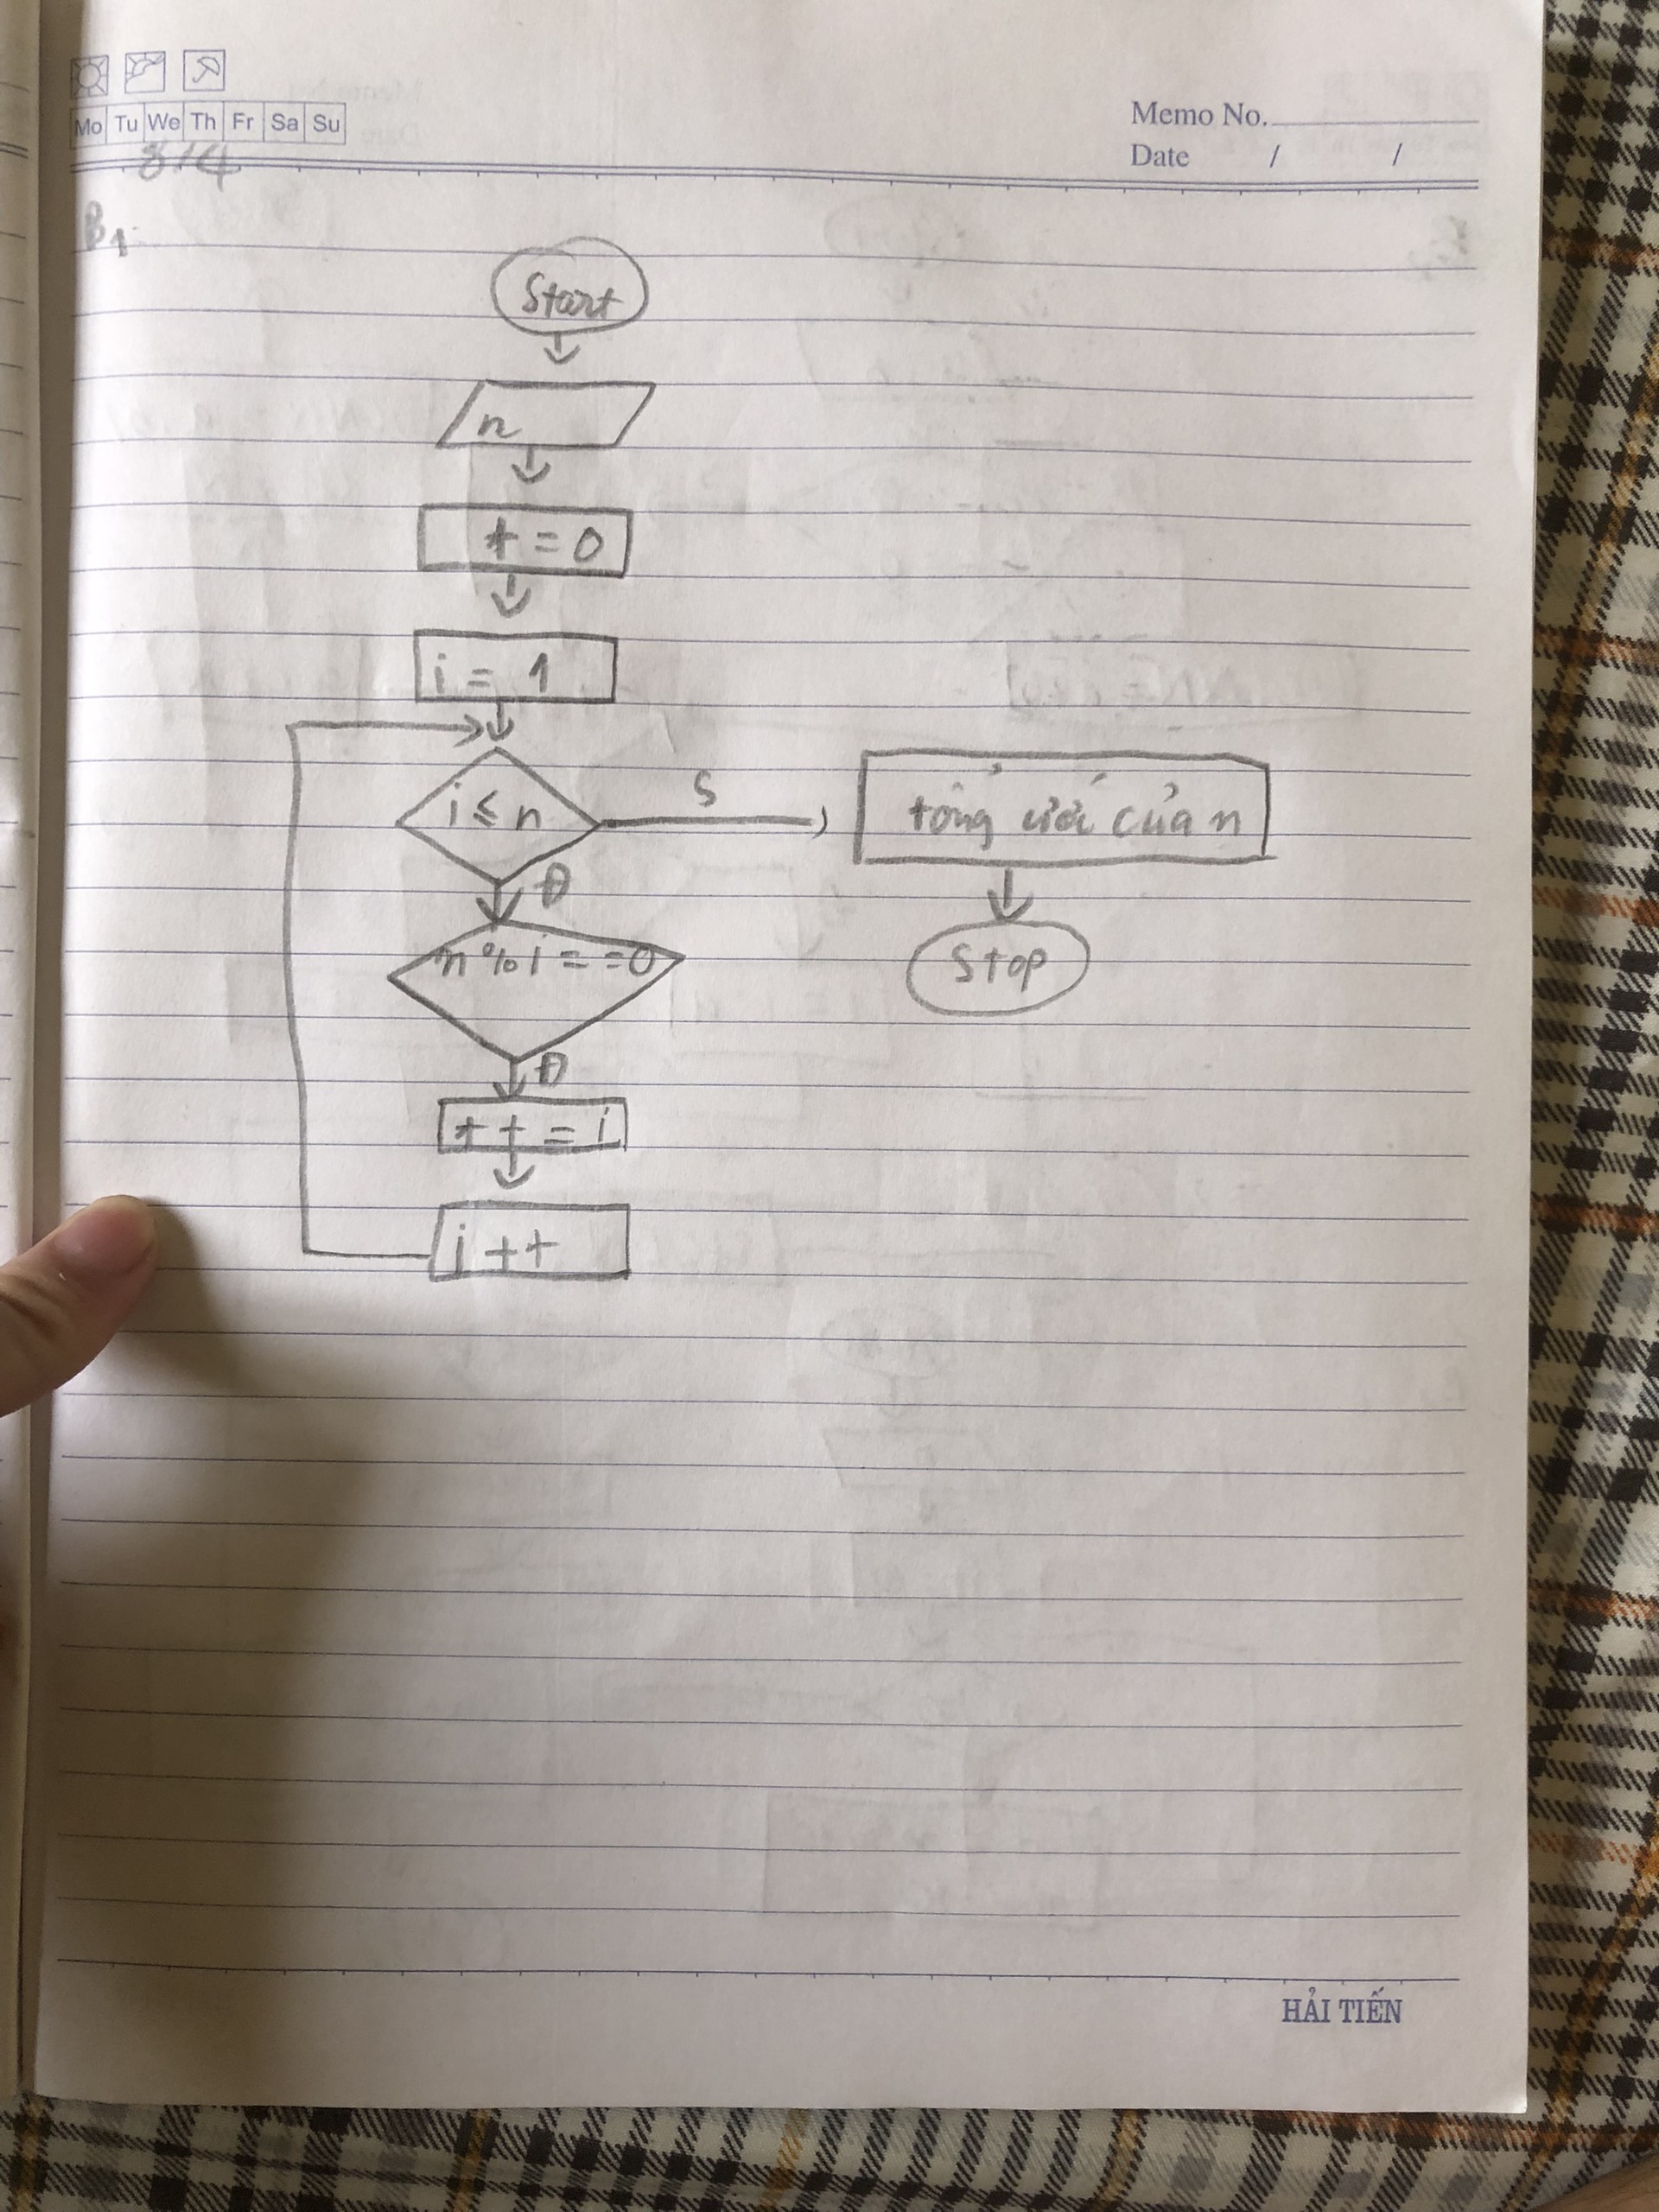 Mo Tu We Th Fr Sa Su
Memo No.
Date / /
8/4
B1
Start
n
t = 0
i = 1
i ≤ n
S
tổng ước của n
Đ
n % i = = 0
Stop
Đ
t + = i
i ++
HẢI TIẾN